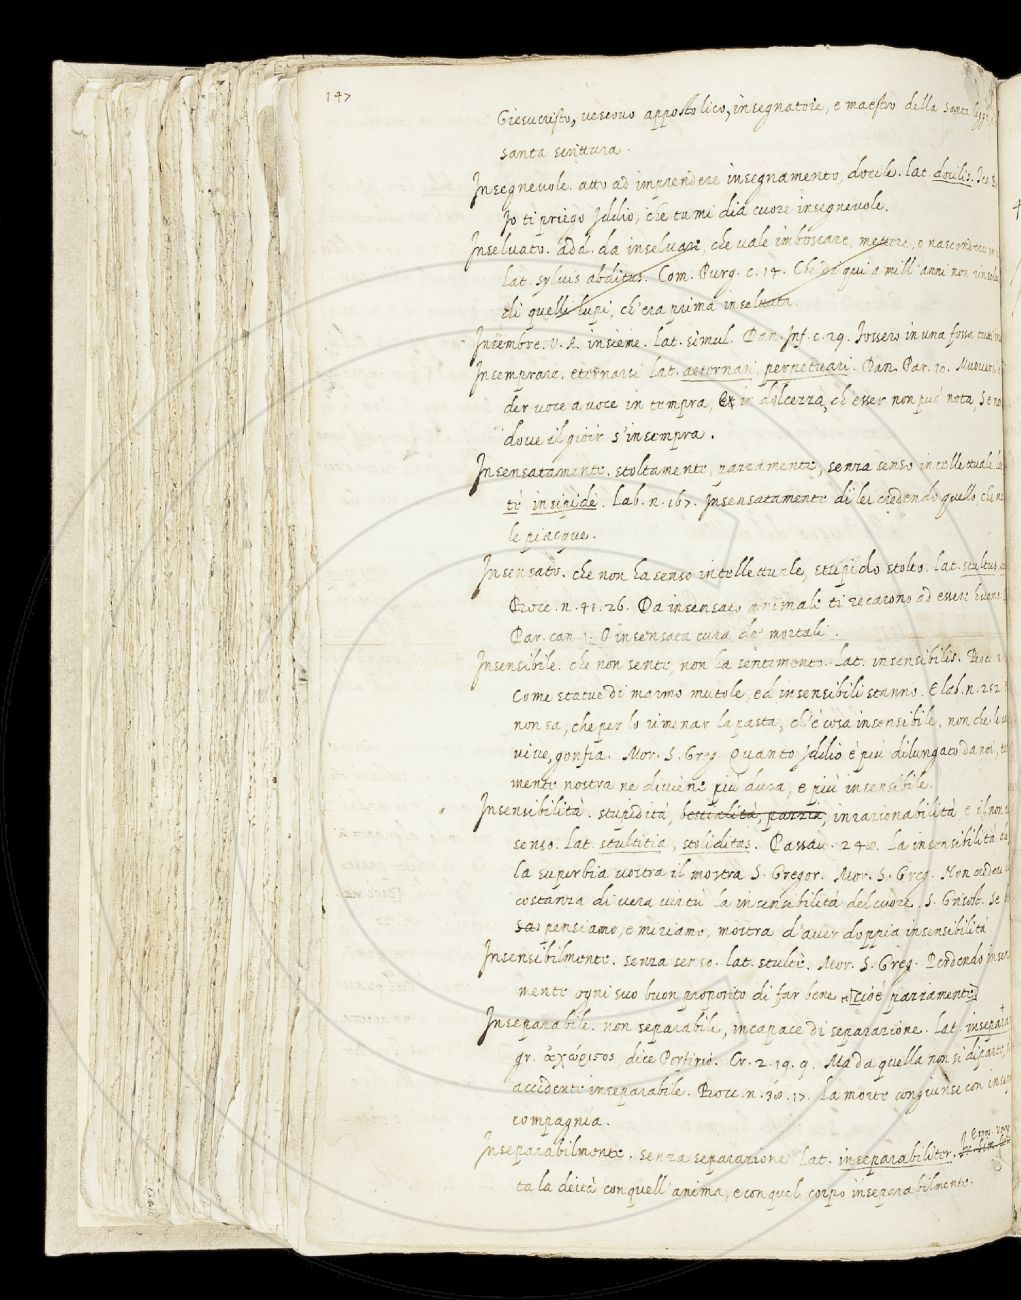 147
Giesucristo, vescovo appostolico, insegnatore, e maestro della santa legge
santa scrittura.
Insegnevole. atto ad imprendere insegnamento, docile. lat. docilis.
Io ti priego Iddio, che tu mi dia cuore insegnevole.
Inselvato. add. da inselvare, che vale imboscare, mettere, o nascondere
Lat. sylvis abditus. Com. Purg. c. 14. Che da qui a mill'anni non
di quelli lupi, ch'era prima inselvata.
Insembre. V. A. insieme. lat. simul. Dan. Inf. c. 29. Fossero in una fossa tutti
Insemprare. eternarsi lat. aeternari, perpetuari. Dan. Par. 10.
der voce a voce in tempra, et in dolcezza, ch'esser non può nota, Se non
dove il gioir s'insempra.
Insensatamente. stoltamente, pazzamente, senza senso intellettuale
tè insipidè. Lab. n. 167. Insensatamente di lei credendo quello che
le piacque.
Insensato. che non ha senso intellettuale, stupido stolto. lat. stultus
Bocc. n. 41. 26. Da insensato animale ti recarono ad essere huomo
Par. can. O insensata cura de' mortali.
Insensibile. che non sente, non ha sentimento. lat. insensibilis. Bocc.
Come statue di marmo mutole, ed insensibili stanno. E lab. n. 252
non sa, che per lo rimenar la pasta, ch'è cosa insensibile, non che le
vive, gonfia. Mor. S. Greg. Quanto Iddio è più dilungato da noi,
mente nostra ne diviene più dura, e più insensibile.
Insensibilità. stupidità, bestialità, pazzia, inrazionabilità, e il non
senso. lat. stultitia, stoliditas. Passav. 248. la insensibilità
la superbia vostra il mostra S. Gregor. Mor. S. Greg. Non
costanza di vera virtù la insensibilità del cuore. S. Grisost. Se
pensiamo, e miriamo, mostra d'aver doppia insensibilità
Insensibilmente. senza senso. lat. stultè. Mor. S. Greg. Perdendo
mente ogni suo buon proposito di far bene [cioè pazzamente]
Inseparabile. non separabile, incapace di separazione. lat.
gr. ἀχώριστος, dice Porfirio. Cr. 2. 19. 9. Ma da quella non si diparte,
accidente inseparabile. Bocc. n. 38. 17. la morte congiunse con
compagnia.
Inseparabilmente. senza separazione lat. inseparabiliter.
ta la deità con quell'anima, e con quel corpo inseparabilmente.